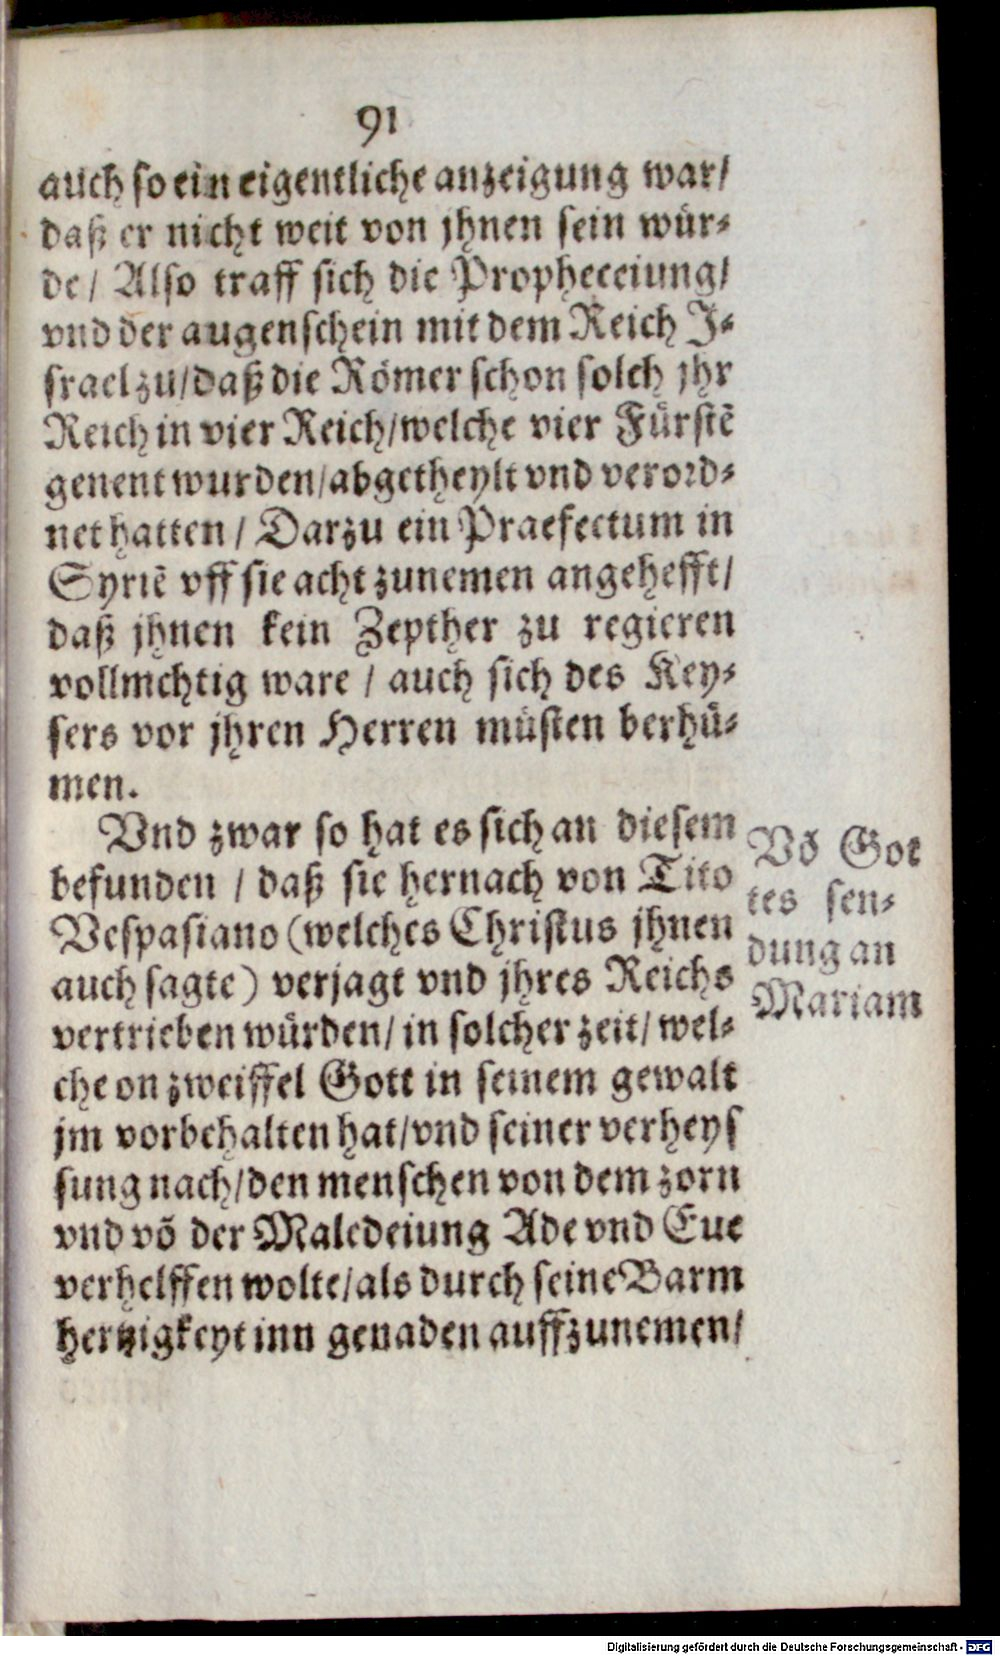 91
auch so ein eigentliche anzeigung war/
daß er nicht weit von jhnen sein wür-
de/ Also traff sich die Propheceiung/
vnd der augenschein mit dem Reich J-
srael zu/daß die Römer schon solch jhr
Reich in vier Reich/welche vier Fürstẽ
genent wurden/abgetheylt vnd verord-
net hatten/ Darzu ein Praefectum in
Syriẽ vff sie acht zunemen angehefft/
daß jhnen kein Zepther zu regieren
vollmchtig ware / auch sich des Key-
sers vor jhren Herren müsten berhü-
men.
Vnd zwar so hat es sich an diesem
befunden / daß sie hernach von Tito
Vespasiano (welches Christus jhnen
auch sagte) verjagt vnd jhres Reichs
vertrieben würden/ in solcher zeit/ wel-
che on zweiffel Gott in seinem gewalt
jm vorbehalten hat/vnd seiner verheys
sung nach/den menschen von dem zorn
vnd võ der Maledeiung Ade vnd Eue
verhelffen wolte/als durch seine Barm
hertzigkeyt inn genaden auffzunemen/
Võ Got
tes sen-
dung an
Mariam
Digitalisierung gefördert durch die Deutsche Forschungsgemeinschaft - DFG